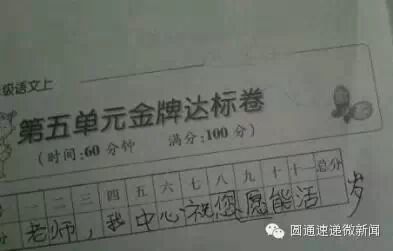 级语文上
第五单元金牌达标卷
(时间:60分钟 满分:100分)
一 二 三 四 五 六 七 八 九 十 十一 总分
分
老师,我中心祝您愿能活 岁
圆通速递微新闻